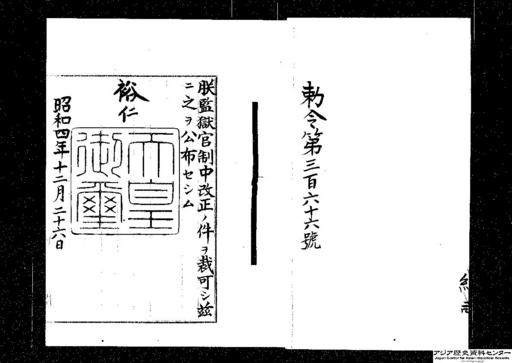 勅令第三百六十六號
朕監獄官制中改正ノ件ヲ裁可シ玆
ニ之ヲ公布セシム
裕仁
天皇
御璽
昭和四年十二月二十六日
アジア歴史資料センター
Japan Center for Asian Historical Records